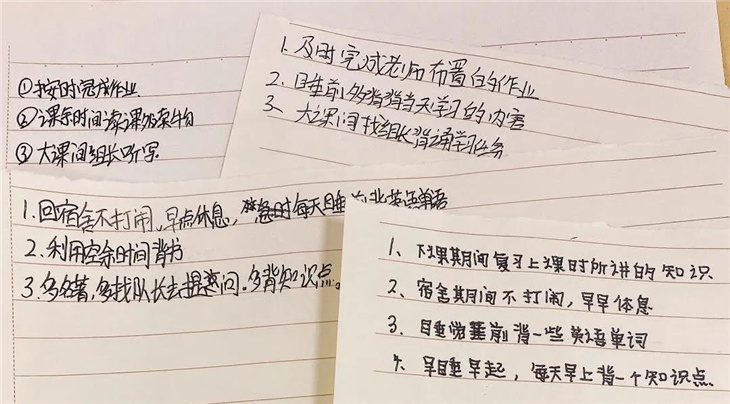 ①按时完成作业
②课余时间读课外读物
③大课间组长听写
1.及时完成老师布置的作业
2.睡前多背背当天学习的内容
3.大课间找组长背诵学习任务
1.回宿舍不打闹,早点休息,每天睡前背英语单语
2.利用空余时间背书
3.多名著,多找队长去提问。多背知识点。
1、下课期间复习上课时所讲的知识
2、宿舍期间不打闹,早早休息
3、睡觉前背一些英语单词
4、早睡早起,每天早上背一个知识点